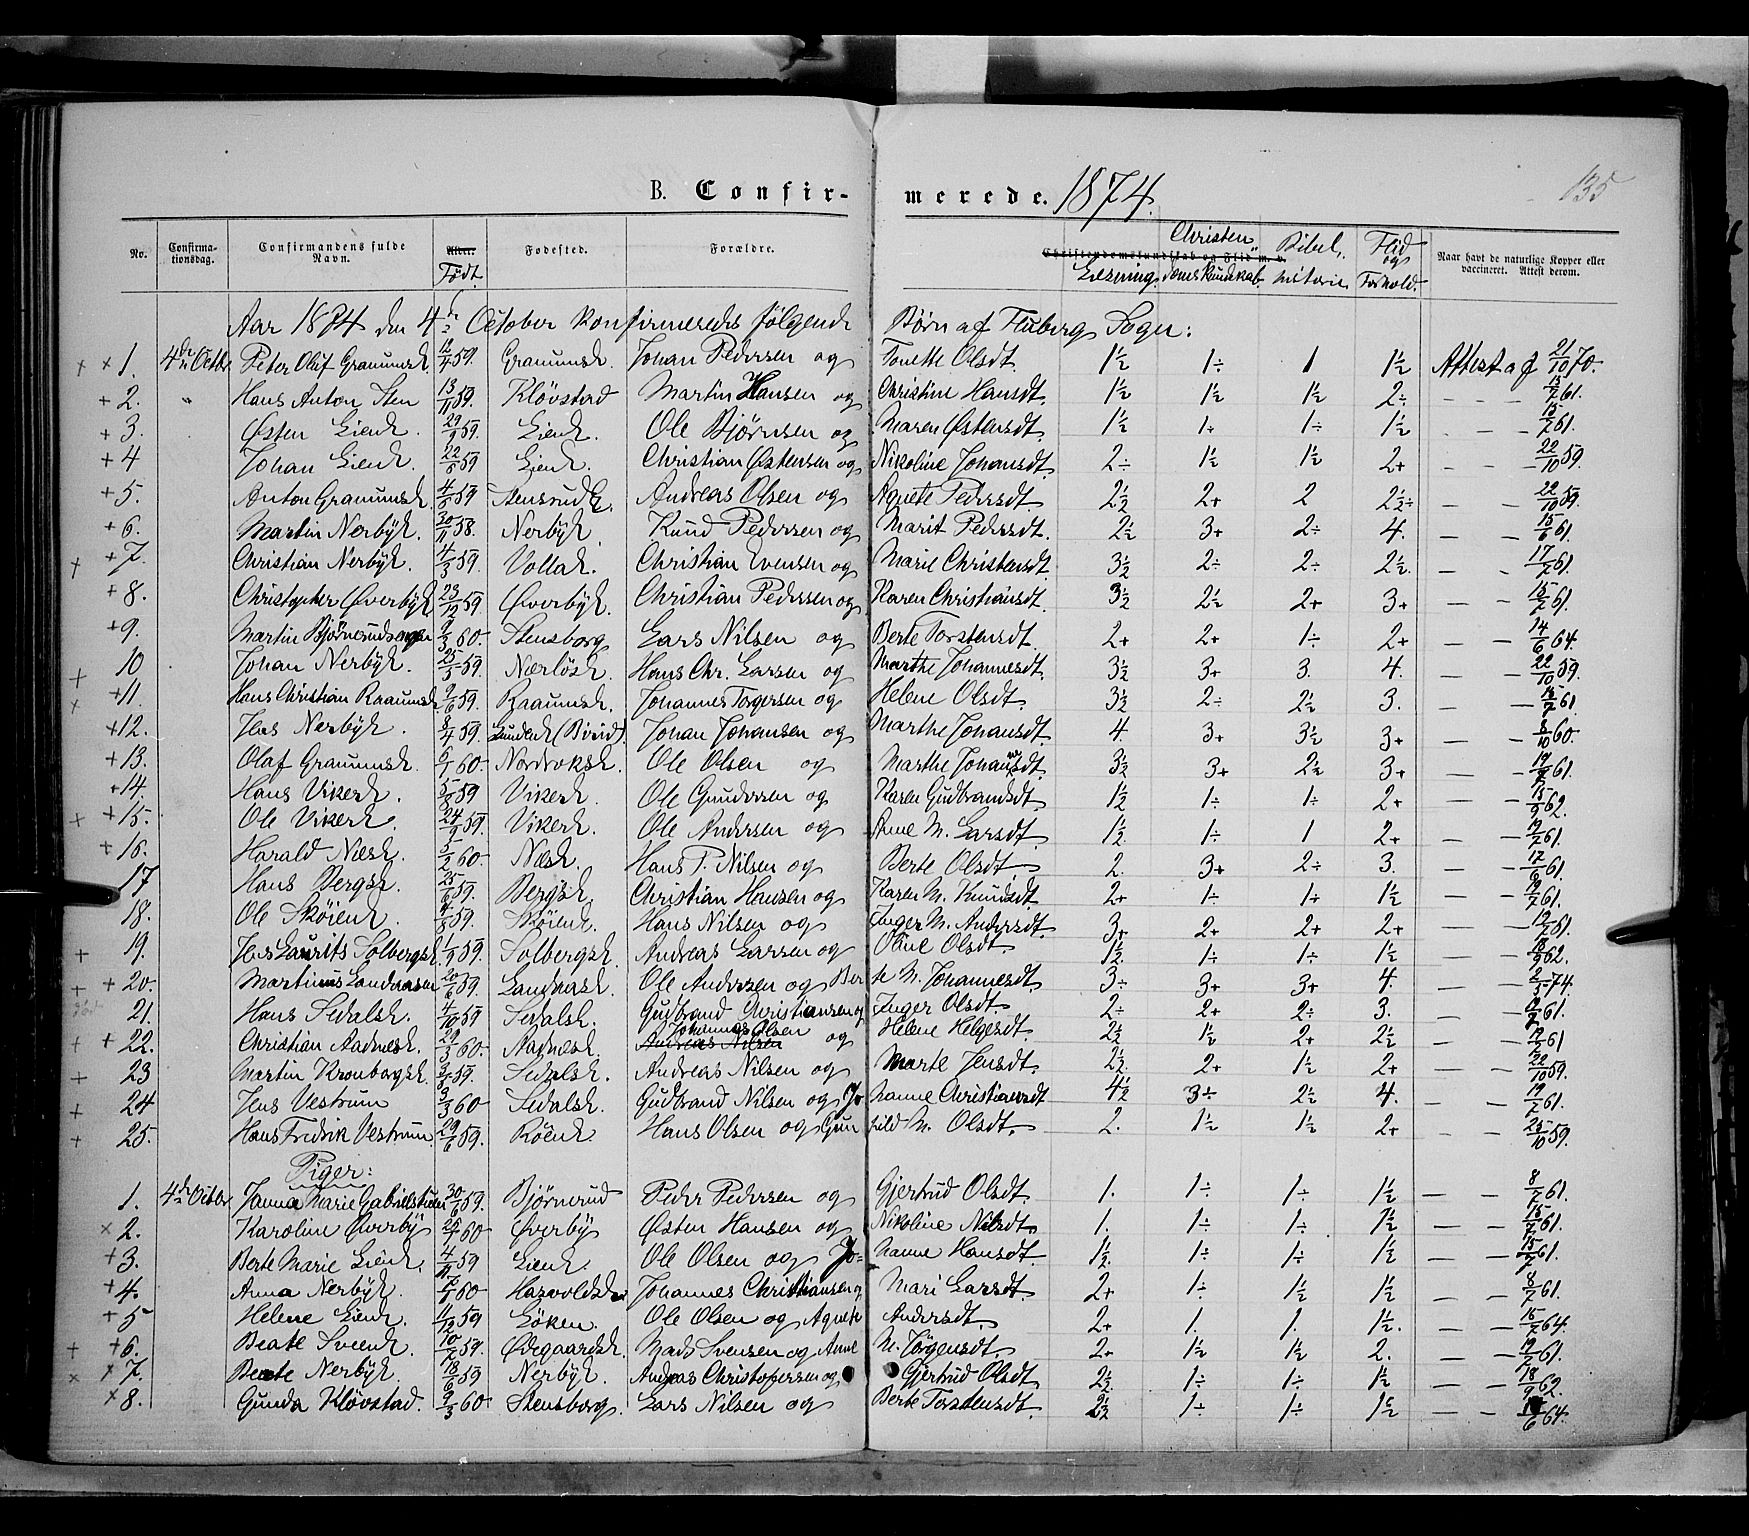 B. Confir- merede. 1874. 135
No. Confirma-tionsdag. Confirmandens fulde Navn. Alder. Født. Fødested. Forældre. Christendomskundskab og Flid m. v. Læsning Christendomskundskab Bibelhistorie Flid og Forhold. Naar havt de naturlige Kopper eller vaccineret. Attest derom.
Aar 1874 den 4de October konfirmeredes følgende Børn af Fluberg Sogn:
1. 4de Octbr Peter Oluf Granumsk 12/4 59. Granumsk. Johan Pedersen og Tonette Olsdt. 1½ 1÷ 1 1½ Attest af 21/10 70.
2. " Hans Anton Sten 13/11 59. Kløvstad Martin Hansen og Christine Hansdt. 1½ 1½ 1½ 2÷ - - - 15/7 61.
3. Østen Lienk. 29/9 59. Lienk. Ole Bjørnsen og Maren Østensdt. 1½ 1÷ 1÷ 1½ - - - 15/7 61.
4 Johan Lienk. 22/5 59 Lienk. Christian Østensen og Nikoline Johansdt. 2÷ 1½ 1½ 2+ - - 22/10 59.
5. Anton Granumsk 4/5 59 Stensrud E. Andreas Olsen og Agnete Pedersdt. 2½ 2+ 2 2½÷ - - 22/10 59.
6. Martin Nerbyk. 30/11 58. Nerbyk. Knud Pedersen og Marit Pedersdt. 2½ 3+ 2÷ 4. - - 15/6 61.
7. Christian Nerbyk. 4/3 59. Vollak. Christian Evensen og Marie Christensdt. 3½ 2÷ 2÷ 2½. - - 17/7 61.
8. Christopher Øverbyk 23/12 59. Øverbyk. Christian Pedersen og Karen Christiansdt. 3½ 2½ 2+ 3+ - - 15/7 61.
9. Martin Bjørnerudsengen 9/3 60. Stensborg Lars Nilsen og Berte Torstensdt. 2+ 2+ 1÷ 2+ - - 14/6 64.
10 Johan Nerbyk. 25/5 59. Nærløsk. Hans Chr. Larsen og Marthe Johannesdt. 3½ 3+ 3. 4. - - 22/10 59.
11. Hans Christian Raaumsk 2/6 59. Raaumsk. Johannes Torgersen og Helene Olsdt. 3½ 2÷ 2½ 3. - - 14/7 61
12. Jens Nerbyk. 8/4 59. Lundenk (Birid). Johan Johansen og Marthe Johansdt. 4 3+ 3½ 3+ - - 8/10 60.
13. Olaf Granumsk. 6/1 60. Nordvoksk. Ole Olsen og Marthe Johansdt. 3½ 3+ 2½ 3+ - - 19/7 61.
14. Hans Vikenk. 5/8 59 Vikenk. Ole Gundersen og Karen Gudbrandsdt. 1½ 1÷ 1÷ 2+ - - 15/9 62.
15. Ole Vikenk. 24/9 59. Vikenk. Ole Andersen og Anne M. Larsdt. 1½ 1÷ 1 2+ - - 19/7 61.
16. Harald Næsk. 5/2 60. Næsk. Hans P. Nilsen og Berte Olsdt. 2. 3+ 2÷ 3. - - 17/6 61.
17 Hans Bergsk. 25/6 59. Bergsk. Christian Hansen og Karen M. Knudsdt. 2+ 1÷ 1+ 1½ - - 19/7 61.
18. Ole Skøienk. 4/8 59. Skøienk. Hans Nilsen og Inger M. Andersdt. 3+ 2+ 2+ 2+ - - 19/7 61.
19. Jens Laurits Solbergsk. 1/9 59. Solbergsk. Andreas Larsen og Oline Olsdt. 1½ 1÷ 1÷ 1½ - - 18/9 62.
20. Martinus Landaasen 20/6 59. Landaask. Ole Andersen og Ber te M. Johannesdt. 3÷ 3+ 3+ 4. - - 2/5 74.
21. Hans Sedalsk. 4/10 59 Sedalsk. Gudbrand Christiansen og Inger Olsdt. 2÷ 2+ 2÷ 3. - - 19/7 61.
22. Christian Aadnesk. 29/3 60. Aadnesk. Johannes Olsen Andreas Nilsen og Helene Helgesdt. 2½ 1½ 2+ 2½ - - 19/7 61
23 Martin Kronborgsk. 3/5 59. Sedalsk. Andreas Nilsen og Marte Jensdt. 2½ 2+ 1½ 2+ - - 22/10 59.
24 Jens Vestrum 3/3 60 Sedalsk. Gudbrand Nilsen og Jo hanne Christiansdt 4½ 3÷ 2½ 4. - - 19/7 61.
25. Hans Fredrik Vestrum 29/6 59. Røenk. Hans Olsen og Gun hild M. Olsdt. 2. 1½ 1½ 2+ - - 25/10 59.
Piger:
1. 4de Octbr. Janna Marie Gabrielstuen 30/6 59. Bjørnerud Peder Pedersen og Gjertrud Olsdt. 1. 1÷ 1÷ 1½ - - 8/7 61.
2. Karoline Øverby 26/1 60 Øverby Østen Hansen og Nikoline Nilsdt. 1. 1÷ 1÷ 1½ - - 15/7 61.
3. Berte Marie Lienk. 4/11 59 Lienk. Ole Olsen og Jo- hanne Hansdt. 1½ 1÷ 1÷ 1½ - - 15/7 61.
4. Anna Nerbyk. 60 Johannes Christiansen og Mari Larsdt. 2+ 1÷ 1½ 1½ - - 8/7 61.
5 Helene Lienk. 4/12 59 Løken. Ole Olsen og Agnete Andersdt. 2+ 1. 1. 1½. - - 15/7 64.
6. Beate Sveenk. 10/7 59. Ødegaardsk. Mads Svensen og Anne M. Jørgensdt. 2+ 1½ 1½ 2. - - 19/7 61.
7. Beate Nerbyk. 18/6 59 Nerbyk. Andreas Christophersen og Gjertrud Olsdt. 2½ 1÷ 1÷ 1½ - - 18/9 62.
8. Gunda Kløvstad. 9/3 60 Stensborg. Lars Nilsen og Berte Torstensdt. 2½ 1+ 1÷ 1½ - - 14/6 64.